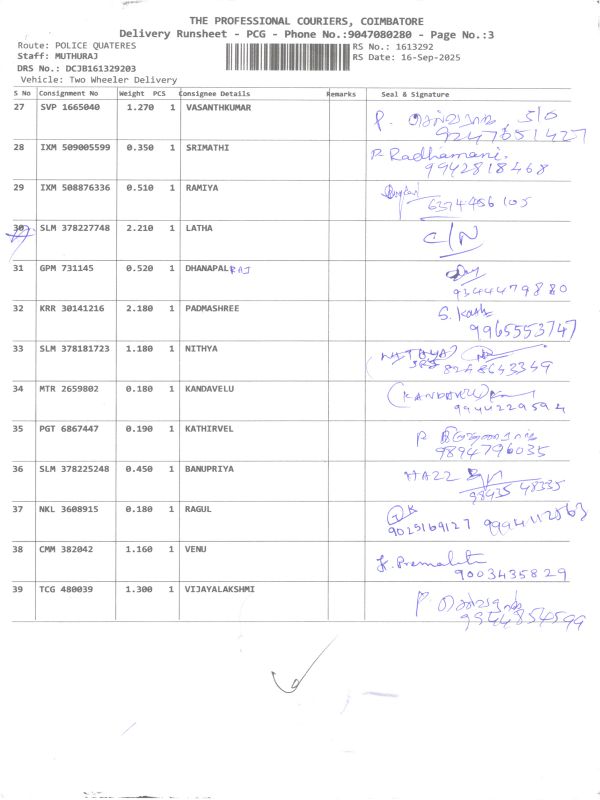 THE PROFESSIONAL COURIERS, COIMBATORE
Delivery Runsheet - PCG - Phone No.:9047080280 - Page No.:3
Route: POLICE QUATERES RS No.: 1613292
Staff: MUTHURAJ RS Date: 16-Sep-2025
DRS No.: DCJB161329203
Vehicle: Two Wheeler Delivery
S No Consignment No Weight PCS Consignee Details Remarks Seal & Signature
27 SVP 1665040 1.270 1 VASANTHKUMAR P. செல்வராஜ், S/O
9247651427
28 IXM 509005599 0.350 1 SRIMATHI P. Radhamani.
9942818468
29 IXM 508876336 0.510 1 RAMIYA
6374456105
30 SLM 378227748 2.210 1 LATHA C/N
31 GPM 731145 0.520 1 DHANAPALRAJ
9344479880
32 KRR 30141216 2.180 1 PADMASHREE S.
9965553747
33 SLM 378181723 1.180 1 NITHYA NITHYA
8248643349
34 MTR 2659802 0.180 1 KANDAVELU KANDAVELU
9944229594
35 PGT 6867447 0.190 1 KATHIRVEL P
9894796035
36 SLM 378225248 0.450 1 BANUPRIYA
98435 48335
37 NKL 3608915 0.180 1 RAGUL GK
9025169127 9994112563
38 CMM 382042 1.160 1 VENU
9003435829
39 TCG 480039 1.300 1 VIJAYALAKSHMI P. செல்வராஜ்
9344854599